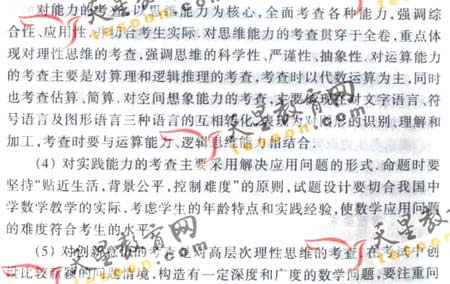 对能力的考查,以思维能力为核心,全面考查各种能力,强调综
合性、应用性,切合考生实际.对思维能力的考查贯穿于全卷,重点体
现对理性思维的考查,强调思维的科学性、严谨性、抽象性.对运算能力
的考查主要是对算理和逻辑推理的考查,考查时以代数运算为主,同时
也考查估算、简算.对空间想象能力的考查,主要体现在对文字语言、符
号语言及图形语言三种语言的互相转化,表现为对图形的识别、理解和
加工,考查时要与运算能力、逻辑思维能力相结合.
(4) 对实践能力的考查主要采用解决应用问题的形式.命题时要
坚持“贴近生活,背景公平,控制难度”的原则,试题设计要切合我国中
学数学教学的实际,考虑学生的年龄特点和实践经验,使数学应用问题
的难度符合考生的水平.
(5) 对创新意识的考查是对高层次理性思维的考查.在考试中创
设比较新颖的问题情境,构造有一定深度和广度的数学问题,要注重问
天星教育网
tesoon.com
天星教育网
tesoon.com